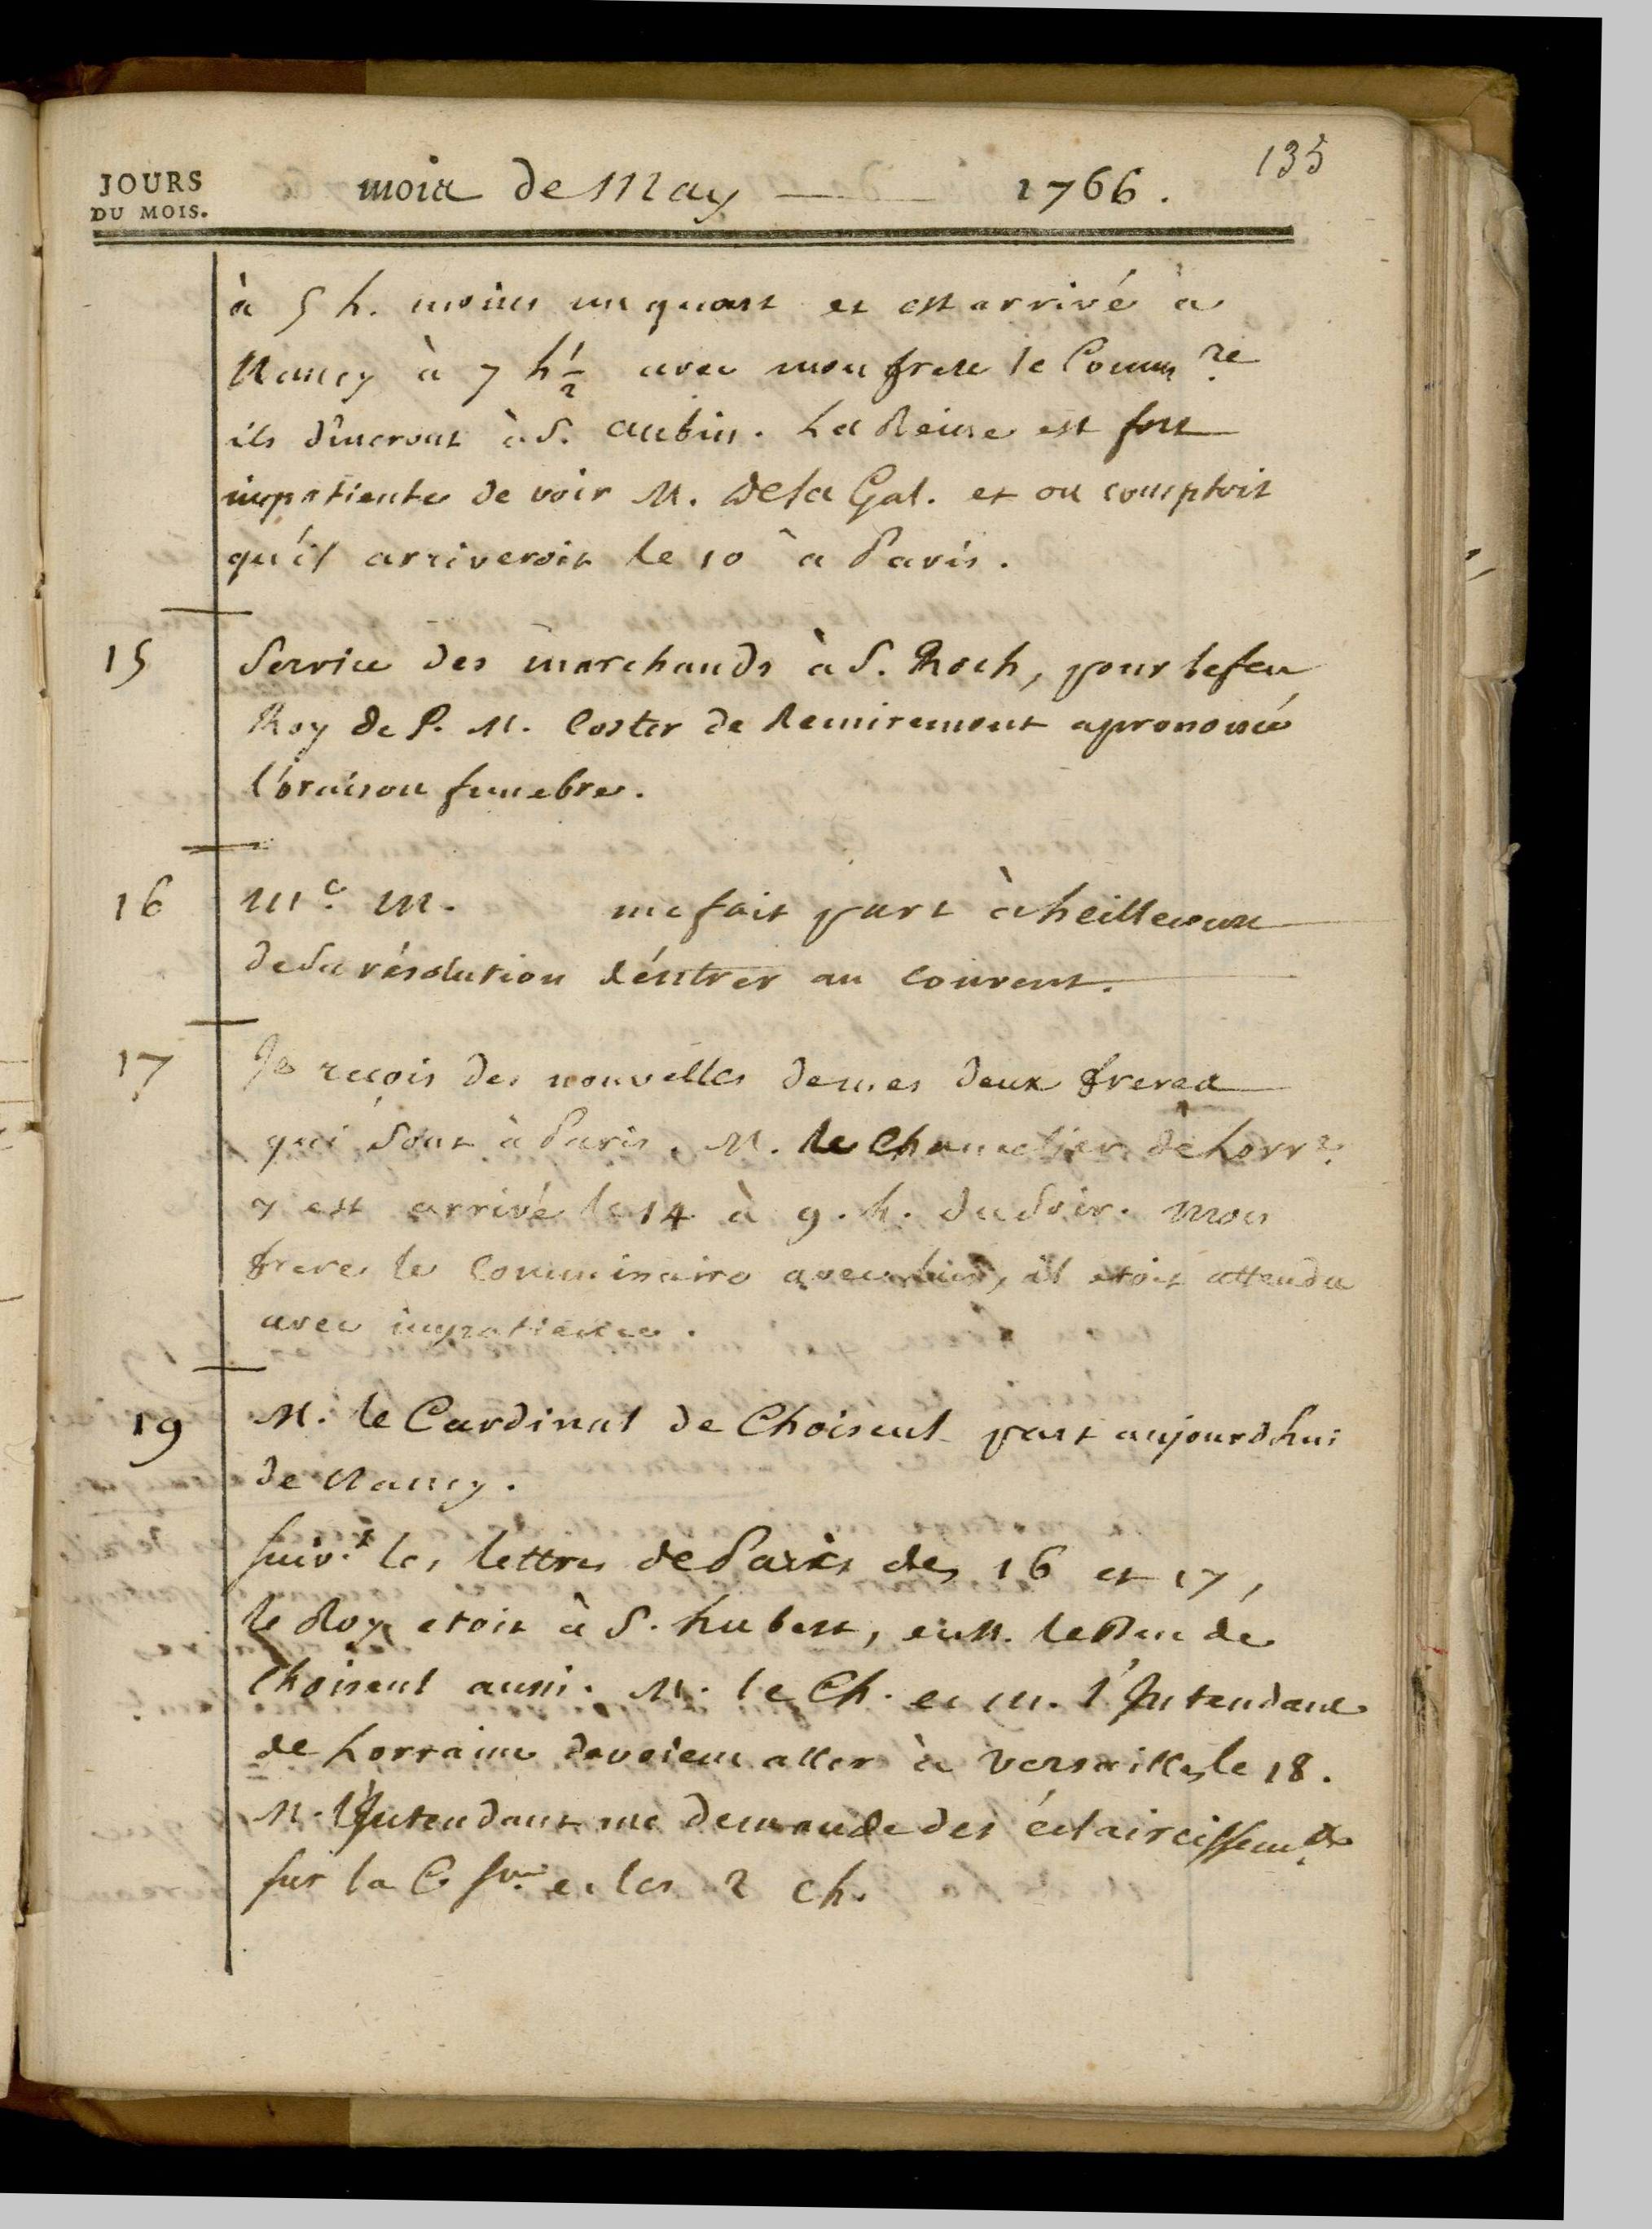 135
JOURS
DU MOIS.
mois de May — 1766.
à 5 h. moins un quart et est arrivé à
Nancy à 7 h ½ avec mon frere le Comm.re
ils dineront à S. Aubin. La Reine est fort
impatiente de voir M. de la Gal. et on comptoit
qu'il arriveroit le 10 à Paris.
15 Service des marchands à S. Roch, pour le feu
Roy de P. M. Coster de Remiremont a prononcé
l'oraison funebre.
16 M.e M. me fait part à heillecourt
de sa résolution d'éntrer au couvent.
17 Je reçois des nouvelles de mes deux freres
qui sont à Paris. M. le Chancelier de Lorr.e
y est arrivé le 14 à 9. h. du soir. mon
frere le Commissaire avec lui, il etoit attendu
avec impatience.
19 M. le Cardinal de Choiseul part aujourdhui
de Nancy.
suiv.t les lettres de Paris des 16 et 17,
le Roy etoit à S. hubert, et M. le Duc de
Choiseul aussi. M. le Ch. et M. l'Intendant
de Lorraine devoient aller à Versailles le 18.
M. l'Intendant me demande des éclaircissem.ts
sur la C. et les 2 ch.